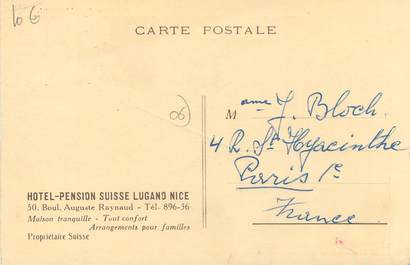 10 €
CARTE POSTALE
06
Mame J. Bloch.
4 R. St Hyacinthe
Paris 1e
France
HOTEL-PENSION SUISSE LUGANO NICE
50. Boul. Auguste Raynaud - Tél. 896-36
Maison tranquille - Tout confort
Arrangements pour familles
Propriétaire Suisse